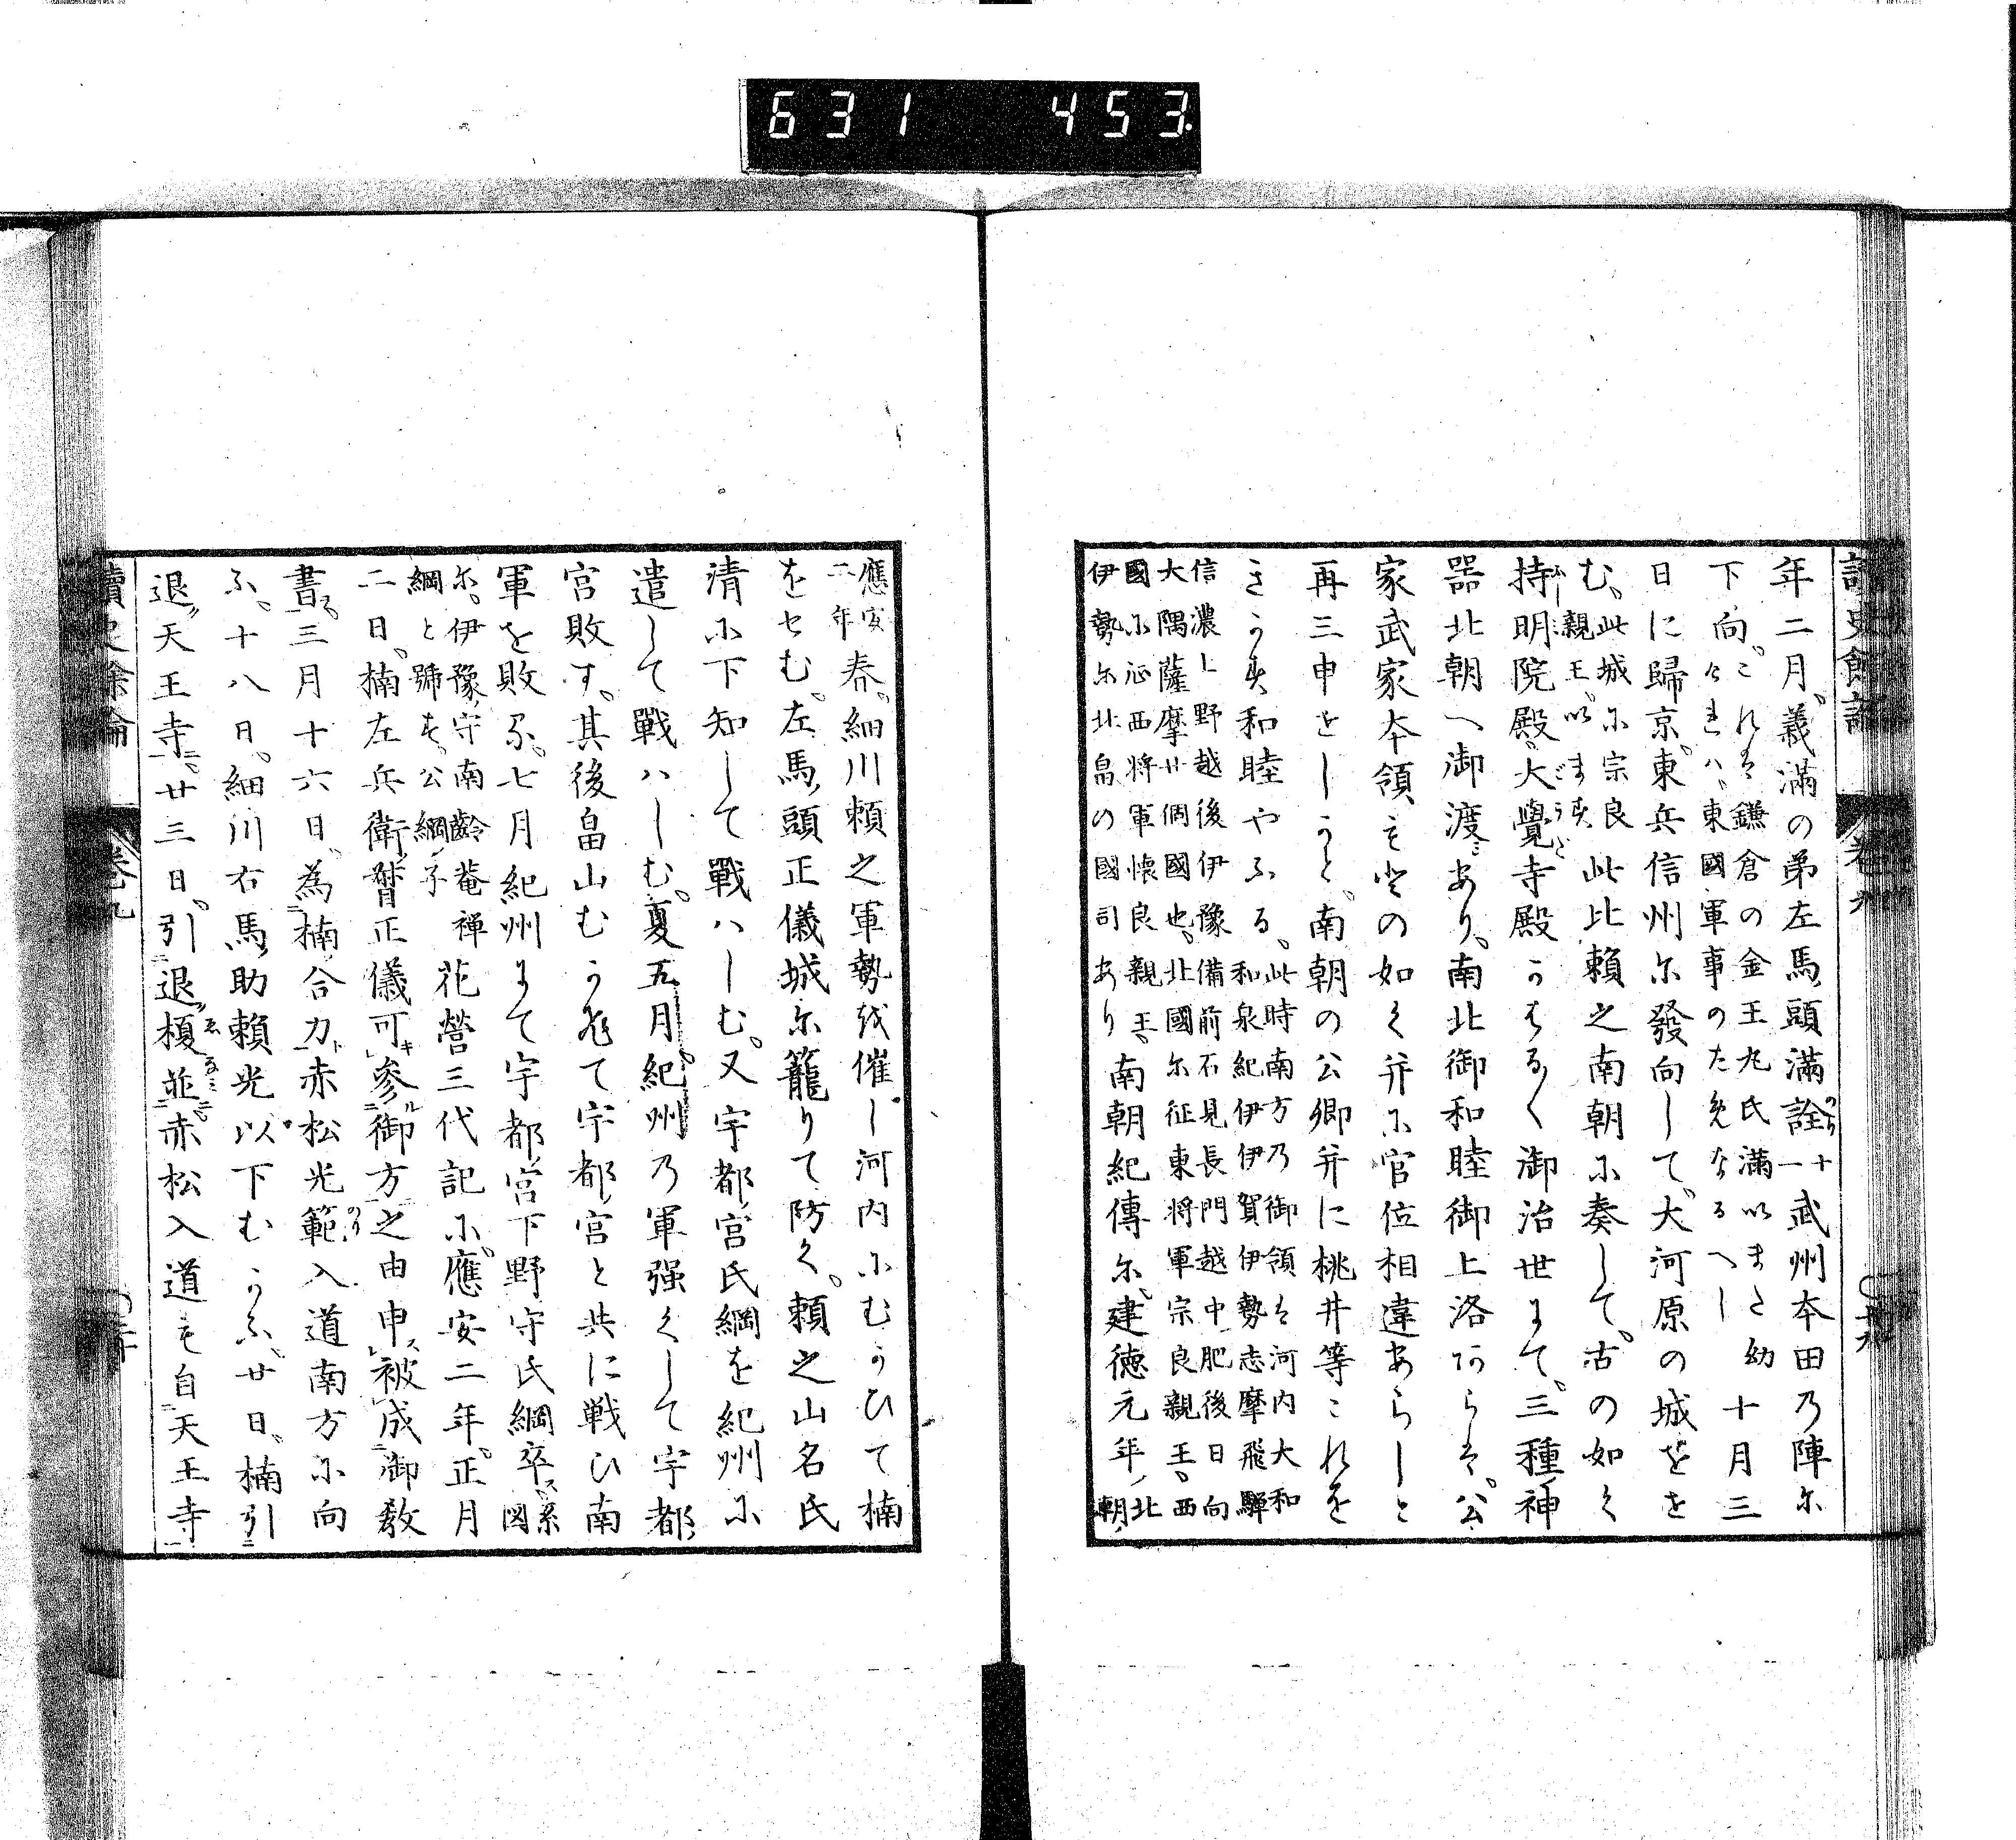 631 453
讀史餘論 卷九
年二月、義滿の弟左馬頭滿詮十一武州本田乃陣尓
下向。これは鎌倉の金王丸氏滿いまた幼けれハ、東國軍事のためなるへし十月三
日に歸京。東兵信州尓發向して、大河原の城をせ
む。此城尓宗良親王います此比賴之南朝尓奏して。古の如く
持明院殿、大覺寺殿かはる〱御治世まて、三種神
器北朝へ御渡あり、南北御和睦御上洛阿らは。公
家武家本領もとの如く并尓官位相違あらしと
再三申せしかと。南朝の公卿并に桃井等これを
きかす和睦やふる。此時南方乃御領は河内大和和泉紀伊伊賀伊勢志摩飛驒
信濃上野越後伊豫備前石見長門越中肥後日向大隅薩摩廿個國也。北國尓征東將軍宗良親王。西
國尓征西將軍懷良親王。伊勢尓北畠の國司あり南朝紀傳尓建徳元年、北朝
應安二年春。細川賴之軍勢を催し河内尓むかひて楠
をせむ。左馬頭正儀城尓籠りて防く。賴之山名氏
清尓下知して戰ハしむ。又宇都宮氏綱を紀州尓
遣して戰ハしむ。夏五月紀州乃軍强くして宇都
宮敗す。其後畠山むかひて宇都宮と共に戦ひ南
軍を敗る。七月紀州まて宇都宮下野守氏綱卒系図
尓。伊豫守南齡菴禪綱と號す。公綱子花營三代記尓。應安二年。正月
二日。楠左兵衛督正儀可參御方之由申被成御教
書。三月十六日為楠合力赤松光範入道南方尓向
ふ。十八日。細川右馬助賴光以下むかふ。廿日。楠引
退天王寺。廿三日。引退榎並赤松入道も自天王寺
讀史餘論 卷九